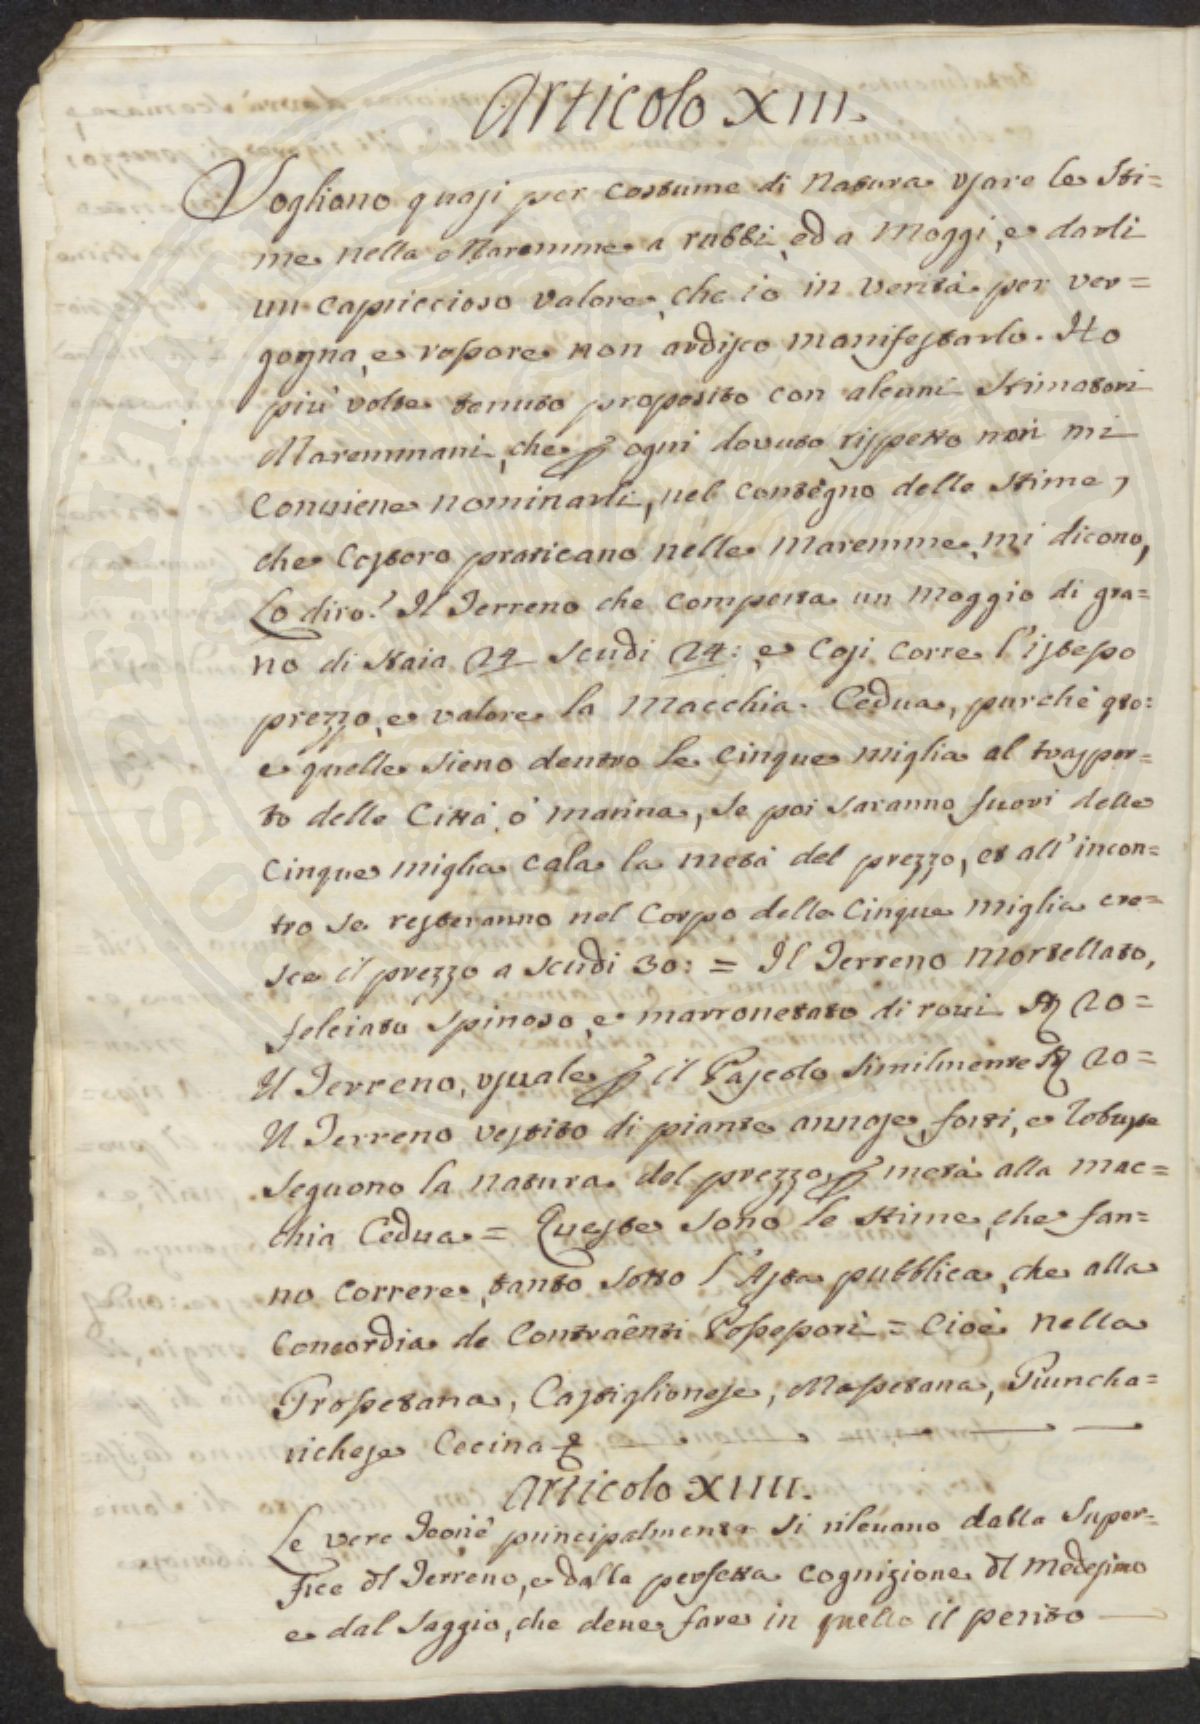 Articolo XIII.
Vogliono quasi per costume di Natura usare le Sti=
me nella Maremme a rubbi, ed a Moggi, e darli
un capriccioso valore, che io in verità per ver=
gogna, e rossore non ardisco manifestarlo. Ho
più volte tenuto proposito con alcuni Stimatori
Maremmani, che p ogni dovuto rispetto non mi
conviene nominarli, nel contegno delle Stime,
che Costoro praticano nelle Maremme, mi dicono,
Lo dirò? Il Terreno che comporta un moggio di gra=
no di Staia 24 Scudi 24: e Cosi corre l'istesso
prezzo, e valore la Macchia Cedua, purchè qto:
e quelle sieno dentro le cinque miglia al traspor=
to delle Città, o marina, se poi saranno fuori delle
cinque miglia cala la metà del prezzo, et all'incon=
tro se resteranno nel Corpo delle Cinque miglia cre=
sce il prezzo a scudi 30: = Il Terreno mortellato,
felciato, spinoso, e marronetato di rovi 20=
Il Terreno, usuale p il Pascolo similmente 20=
Il Terreno vestito di piante annose, forti, e robuste
seguono la natura del prezzo, p metà alla mac=
chia Cedua = Queste sono le stime, che fan=
no correre, tanto sotto l'Asta pubblica, che alla
Concordia de Contraenti Possessori = Cioè nella
Grossetana, Castiglionese, Massetana, Piuncha=
richese Cecina
Articolo XIIII.
Le vere Teoriè principalmente si rilevano dalla Super=
fice dl Terreno, e dalla perfetta cognizione dl Medesimo
e dal Saggio, che deve fare in quello il perito